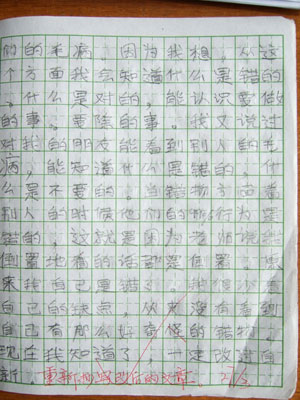 们的毛病。因为我想，从这
个方面我会知道什么是错的
，什么是对的，能认识要做
的事，要除的事。我又说过
对我的朋友能看到别人的毛
病，能知道什么是错的，什
么是不要的。当错物方面看
别人的时候他们的行为是
错的，这就是因为老师说
倒置地看的话都是倒置。
来我自己是错了，我很少看
自己的缺点，从来没有看到
自己有那么好奇怪的错物。
现在我知道了，一定改进自
新。重新 改后的文章。